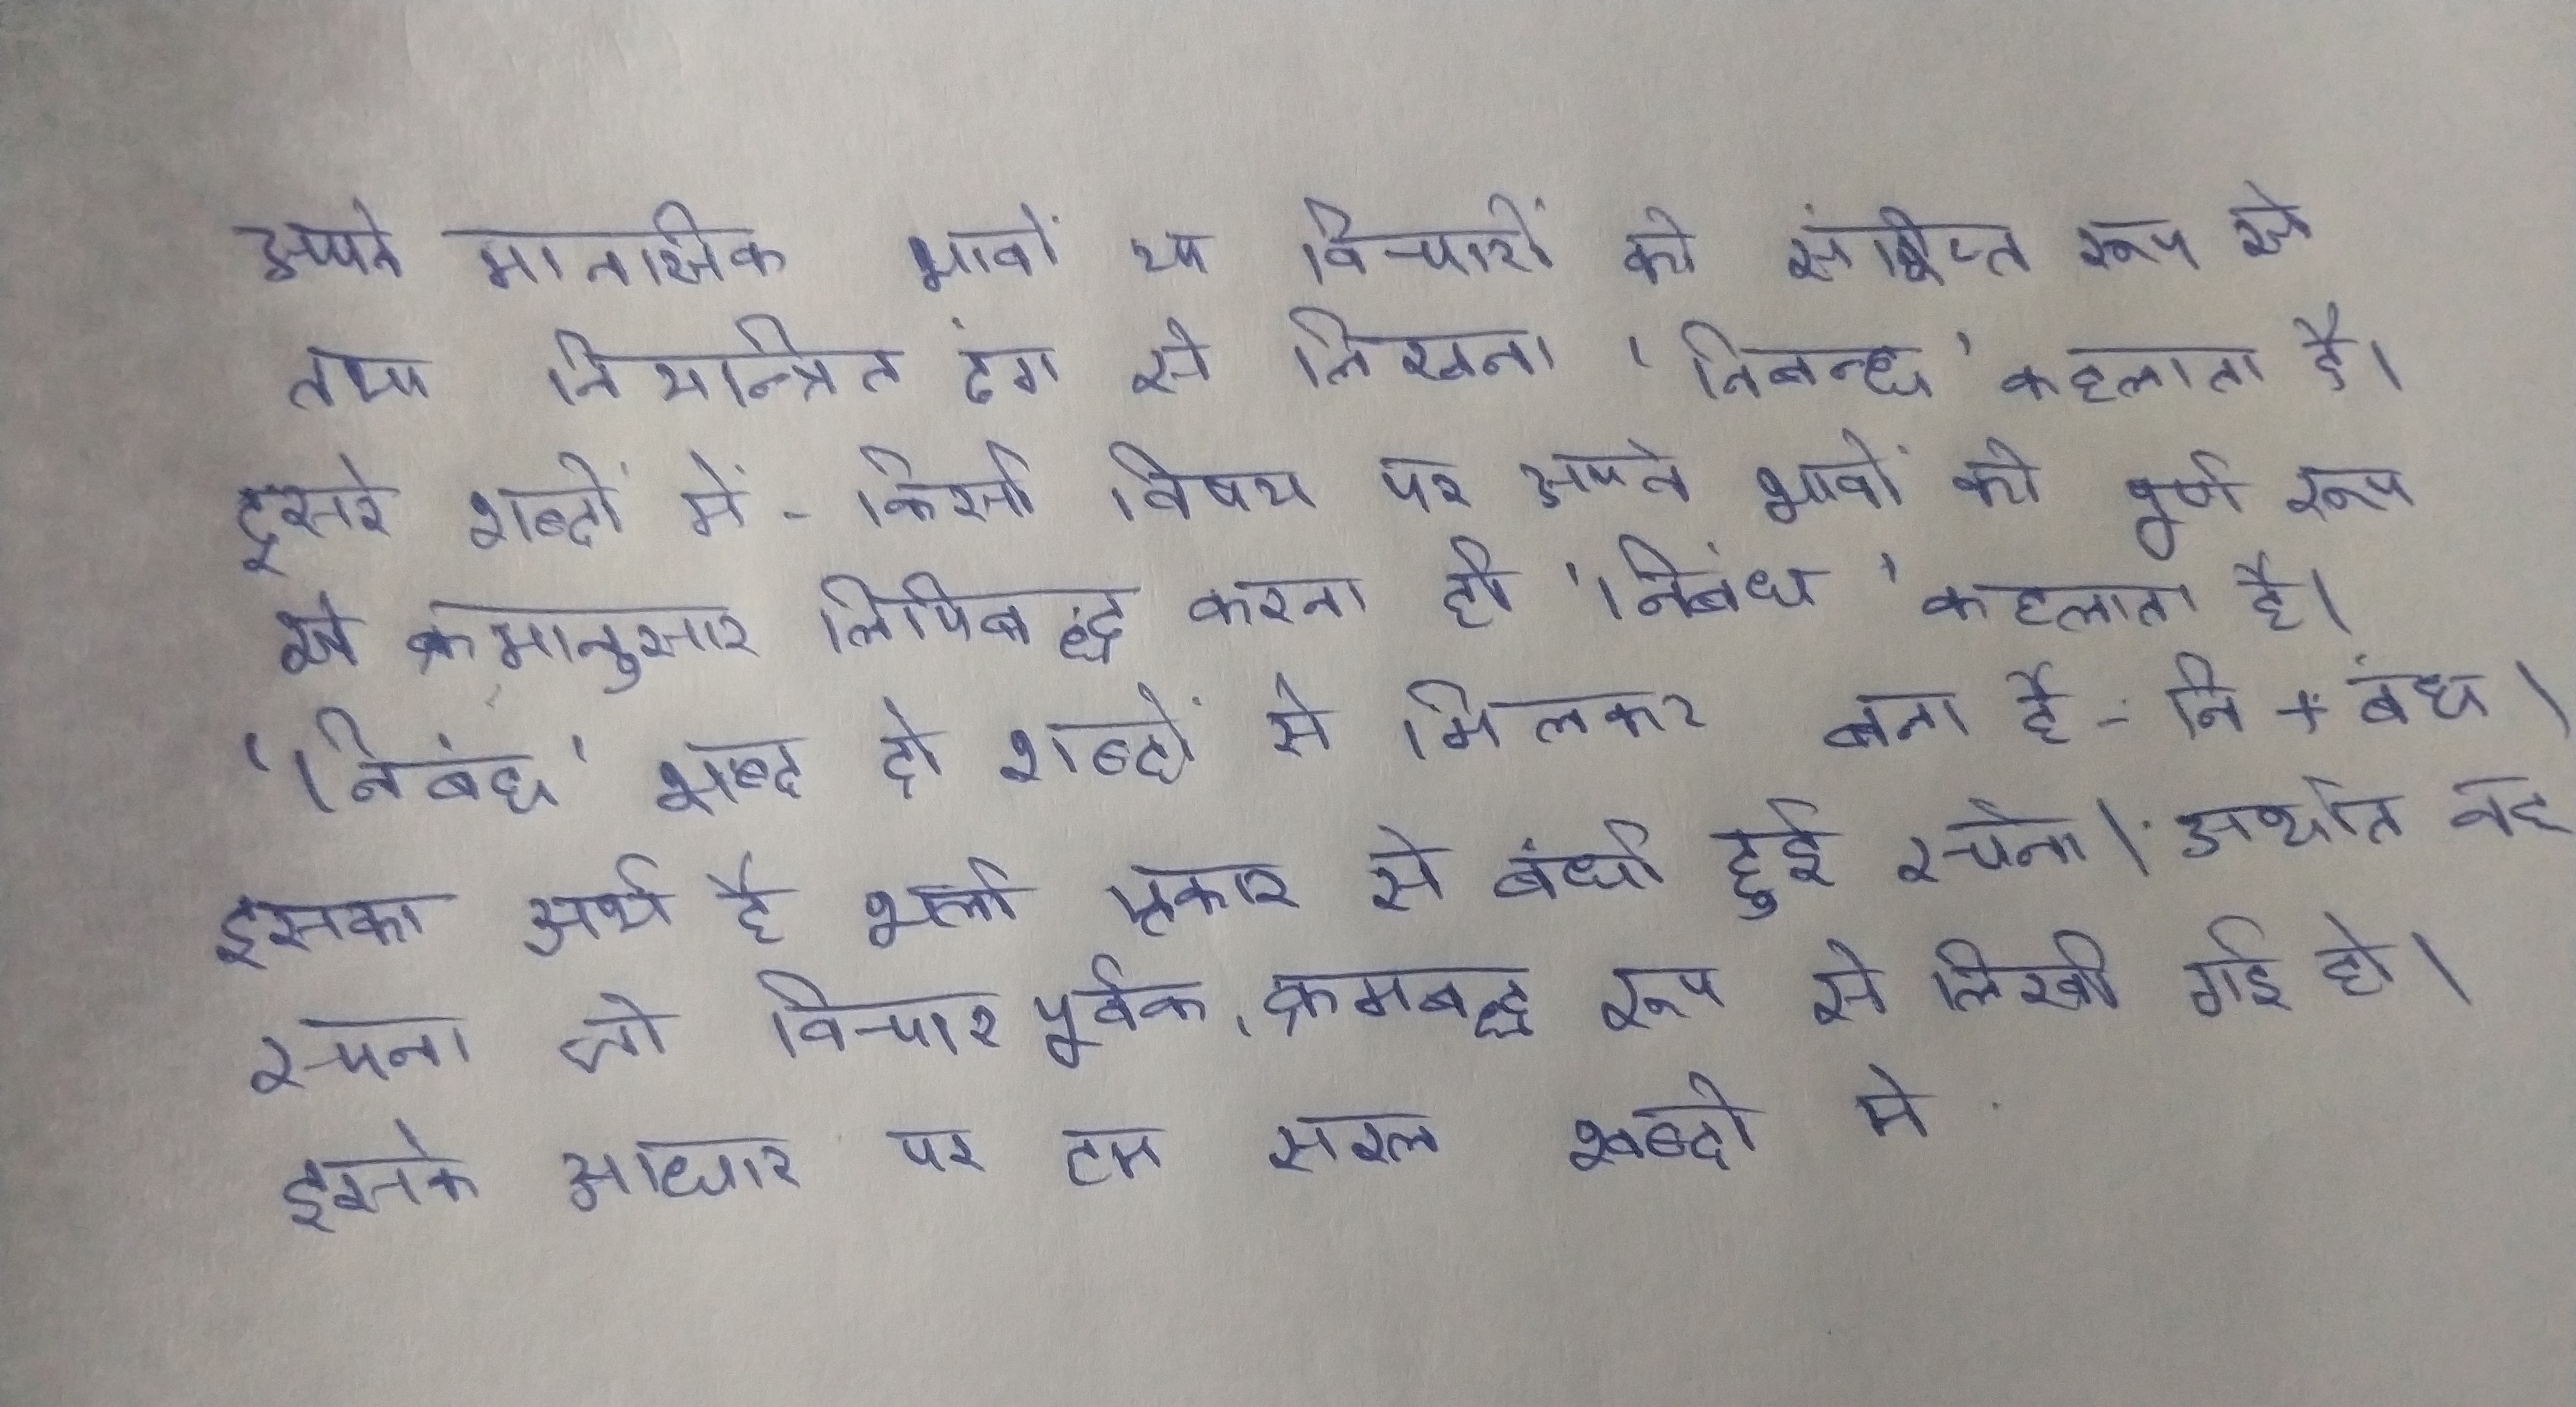 अपने मानासिक भावों या विचारों को संक्षिप्त रूप से
तथा नियन्त्रित ढंग से लिखना 'निबन्ध' कहलाता है।
दूसरे शब्दों में - किसी विषय पर अपने भावों को पूर्ण रूप
से क्रमानुसार लिपिबद्ध करना ही 'निबंध' कहलाता है।
'निबंध' शब्द दो शब्दों से मिलकर बना है - नि + बंध।
इसका अर्थ है भली प्रकार से बंधी हुई रचना। अर्थात वह
रचना जो विचार पूर्वक, क्रमबद्ध रूप से लिखी गई हो।
इसके आधार पर हम सरल शब्दो मे